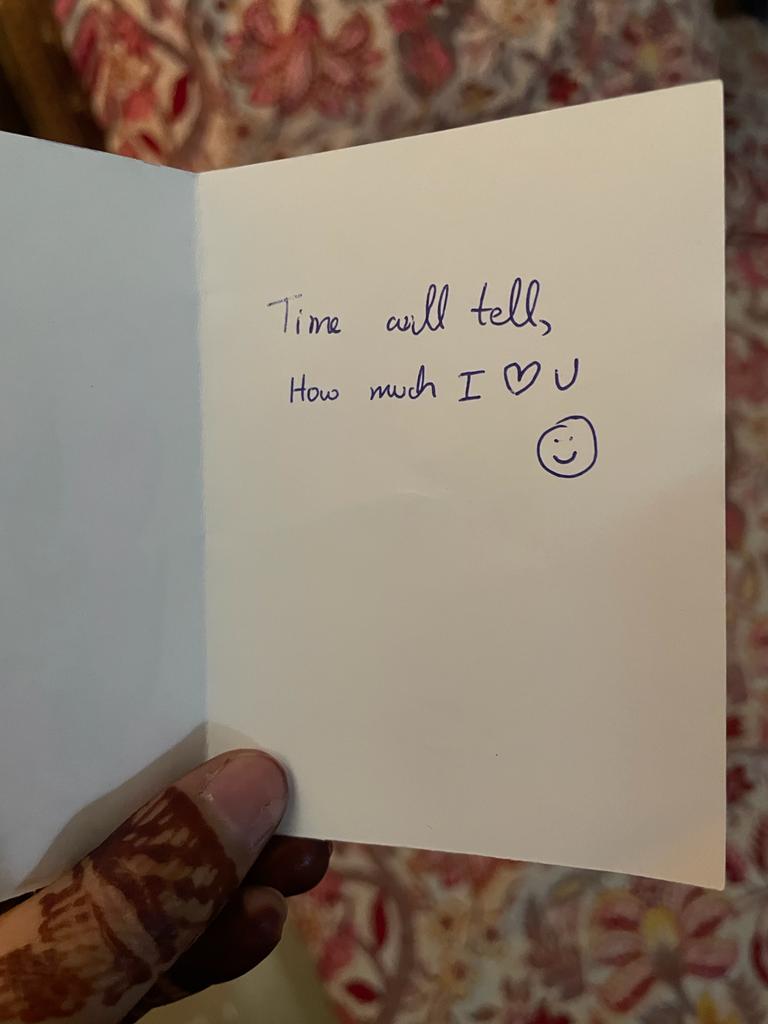 Time will tell,
How much I ♡ U
☺